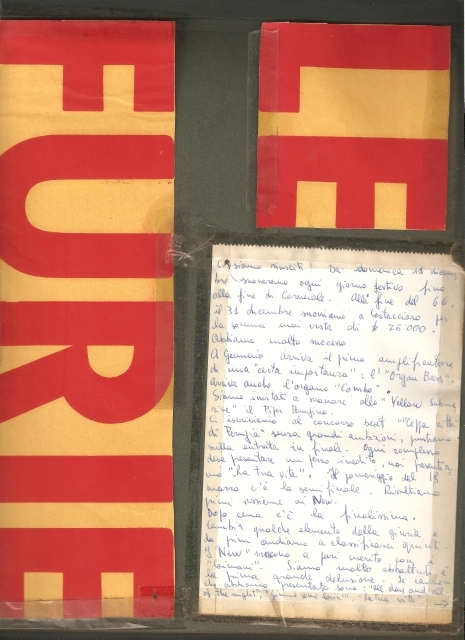 LE
FURIE
Ci siamo riusciti. Da domenica 18 dicem
bre suoneremo ogni giorno festivo fino
alla fine di Carnevale. Alla fine del 66
il 31 dicembre suoniamo a Costacciaro per
la somma mai vista di £ 75.000.
Abbiamo molto successo.
A Gennaio arriva il primo amplificatore
di una "certa importanza": l'"Organ Bass".
Arriva anche l'organo "Combo".
Siamo invitati a suonare allo "Yellow Subma
rine" il Piper Perugino.
Ci iscriviamo al concorso beat "Coppa città
di Perugia" senza grandi ambizioni, puntiamo
sulla entrata in finale. Ogni complesso
deve presentare un pezzo inedito, noi presentia
mo "La tua vita". Il pomeriggio del 18
marzo c'è la semifinale. Risultiamo
primi assieme ai New.
Dopo cena c'è la finalissima.
Cambia qualche elemento della giuria e
da primi andiamo a classificarci quinti.
I "New" vincono a pari merito con
Siamo molto abbattuti, è
la prima grande delusione. Le canzoni
che abbiamo presentato sono: "all day and all
of the night", "Gimme some lovin'" "La tua vita"